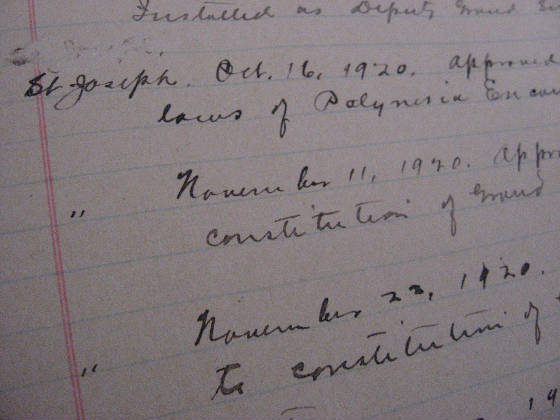 Installed as Deputy Grand
St Joseph. Oct. 16, 1920. Approved
laws of Polynesia
November 11, 1920. Appr
" constitution of Grand
November 22, 1920.
" to constitution of
19